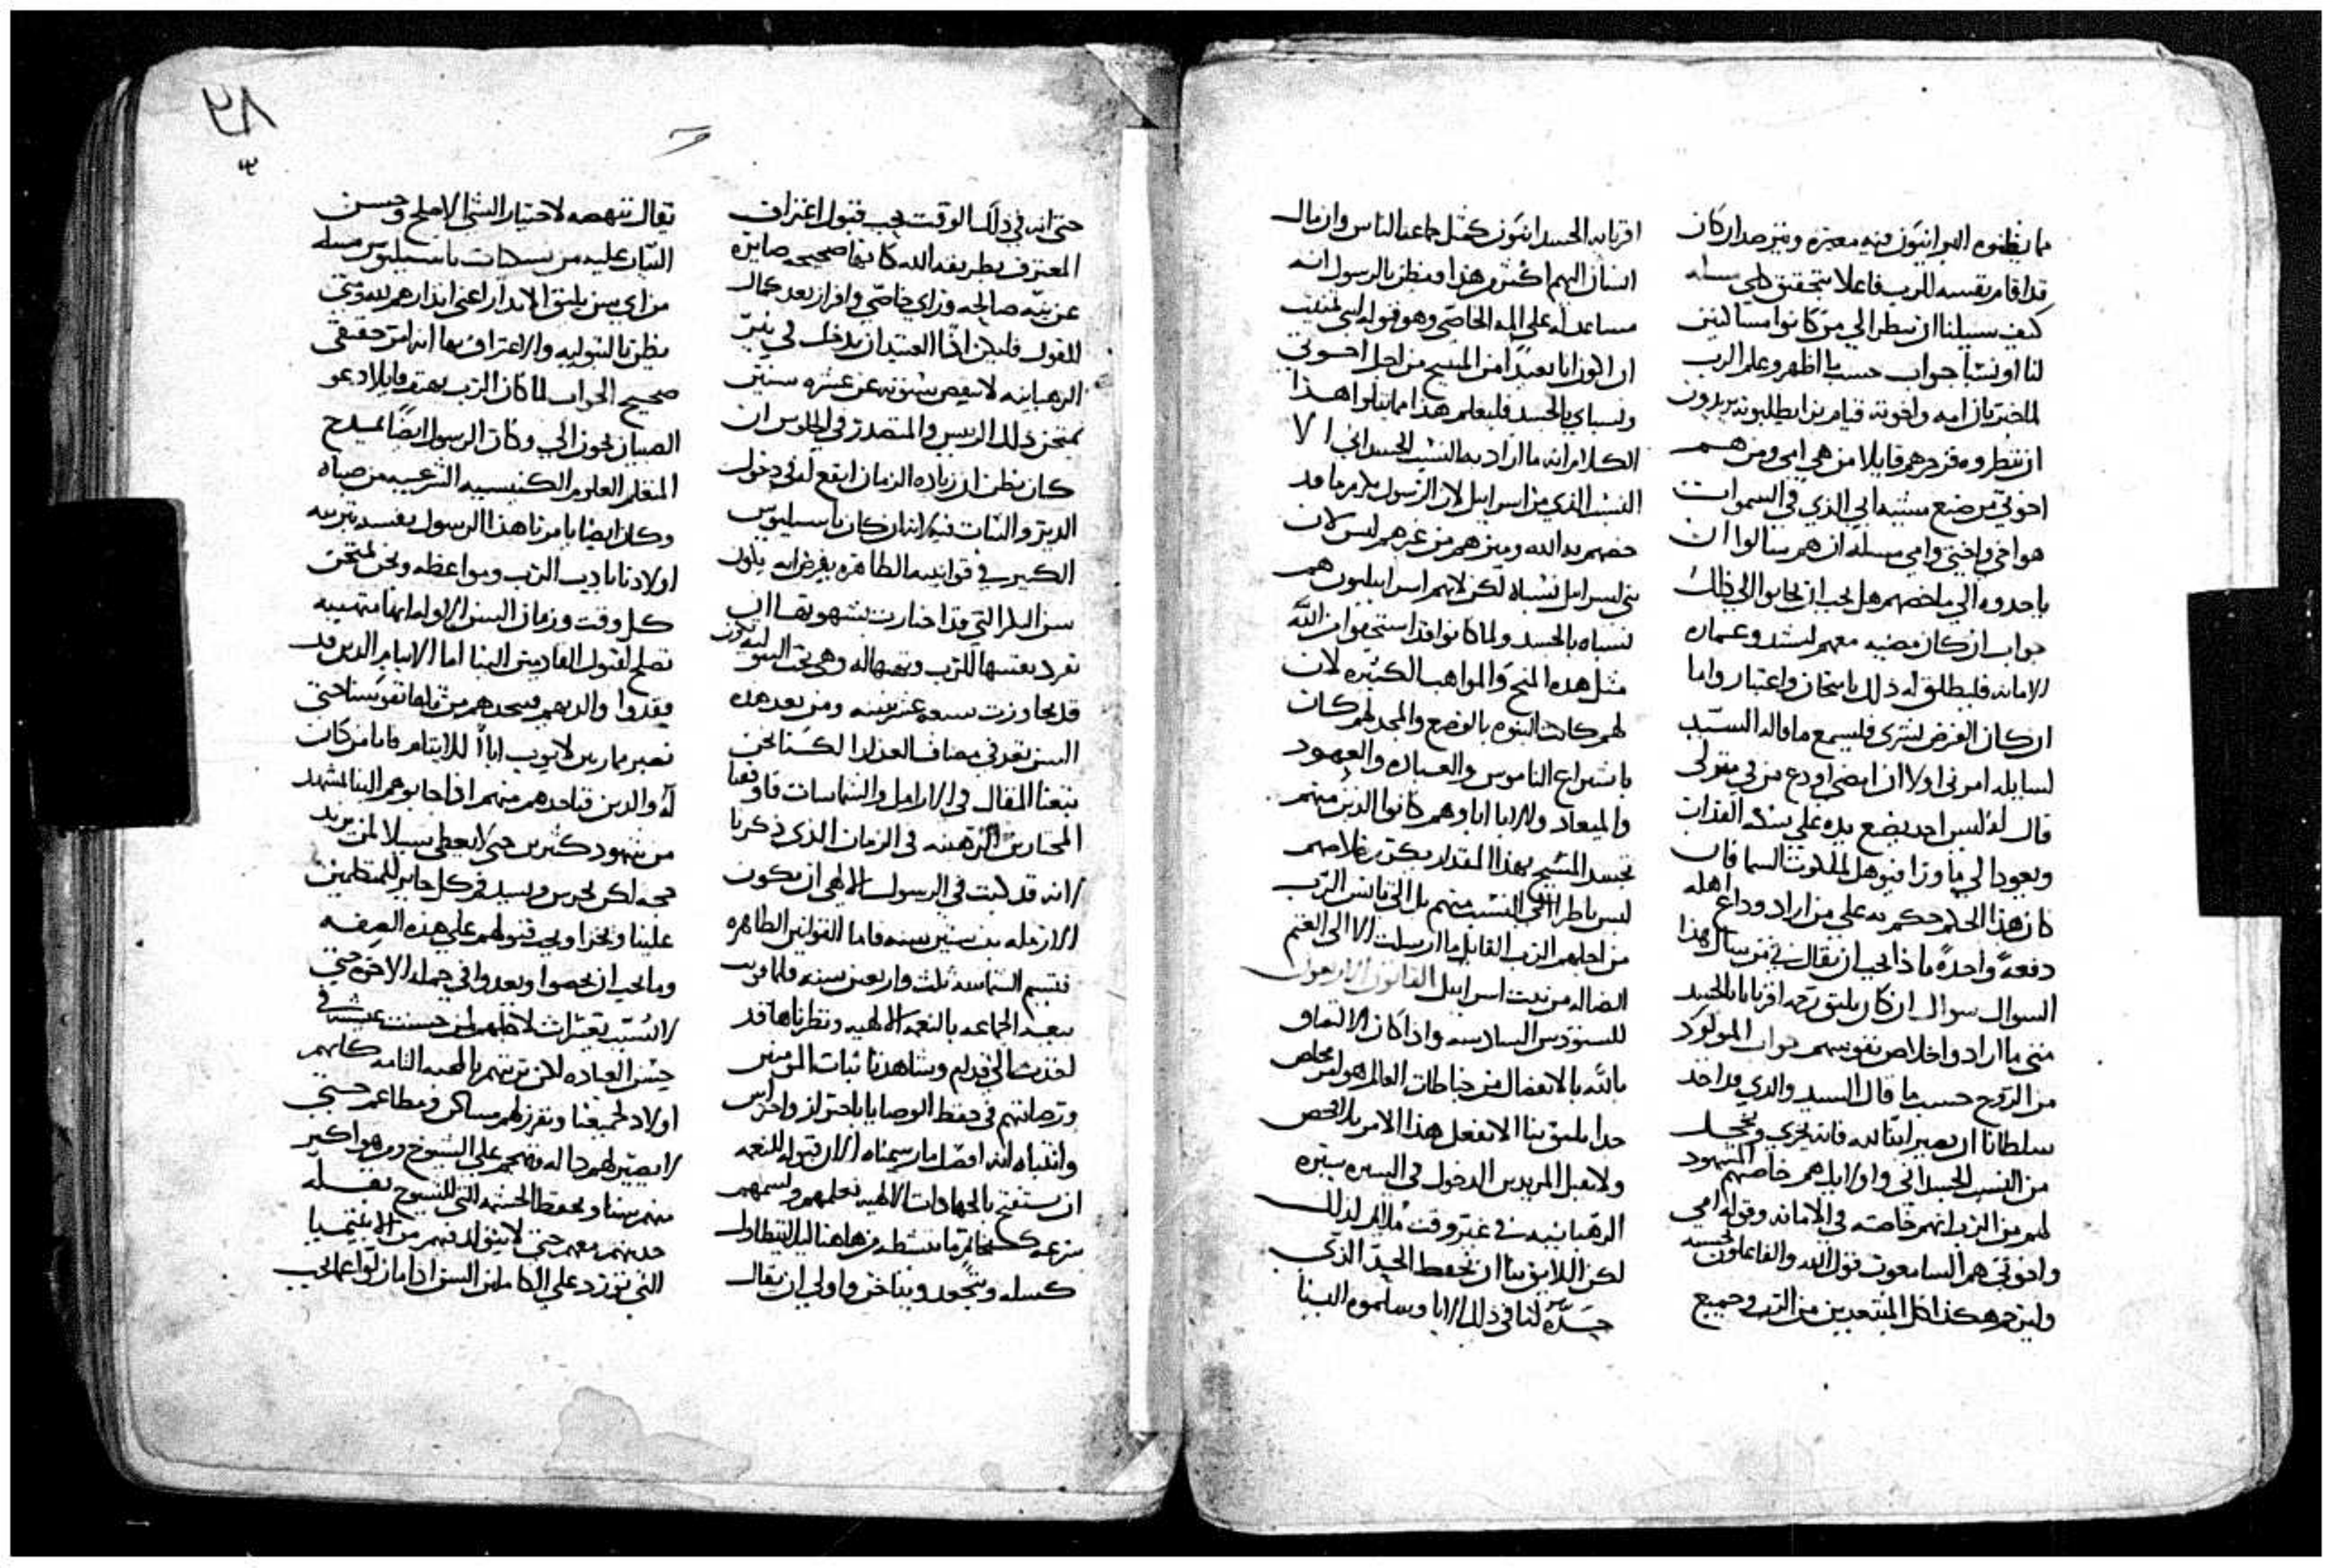 مما يظنوه البرانيون فيه معيره ويتر صدا ان كان
قد اقام نفسه للرب فاعلا متحققا كل مسله
كيف سبيلنا ان ننظر الي من كانوا مسالين
لنا او نشا جواب حسب ما اظهر وعلم الرب
لما خبر بان امه واخوته قيام برا يطلبونه يريدون
ان ينظروه فزجرهم قايلا من هي امي ومن هم
اخوتي من صنع مشيه ابي الذي في السموات
هو اخي واختي وامي مسله ان هم سالوا ان
ياخدوه الي ماخصهم هل يجب ان يجابوا الي ذلك
جواب ان كان مضيه معهم لشد وعماره
الامانه فليطلق له ذلك بامتحان واعتبار واما
ان كان الغرض لشري فليسمع ما قاله السيد
لسايله امرني اولا ان امضي اودع من في منزلي
قال له ليس احد يضع يده علي سكه الفدان
ويعود الي ما وراه فيوهل لملكوت السما فان
كان هذا الحكم حكم به علي من اراد وداع اهله
دفعه واحده ماذا يجب ان يقال في من سال هذا
السوال سوال ان كان يليق رحمه اقربايا بالجسد
متي ما ارادوا خلاص نفوسهم جواب المولود
من الروح حسب ما قال السيد والدي قد اخذ
سلطانا ان يصير ابنا لله فانه يخزي ويخجل
من النسب الجسداني واوليك هم خاصتهم المشهود
لهم من الرب انهم خاصته في الامانه وقوله امي
واخوتي هم السامعون قول الله والفاعلون بحسبه
وليزجر هكذا كل المبتعدين من الرب وجميع
اقربايه الجسدانيون كمثل جماعه الناس وان مال
انسان اليهم اكثر من هذا ويظن بالرسول انه
مساعد له علي المه الخاصي وهو قوله اني تمنيت
ان اكون انا بعيدا من المسيح من اجل اخوتي
ونسباي بالجسد فليعلم هذا مما يتلوا هذا
الكلام انه ما اراد به النسب الجسداني الا
النسب الذي من اسراييل لان الرسول يامر ما قد
خصهم به الله وميزهم من غيرهم ليس لان
بني اسراييل نسباه لكن لانهم اسراييليون هم
نسباه بالجسد ولما كانوا قد استحقوا من الله
مثل هذه المنح والمواهب الكثيره لان
لهم كانت البنوه بالوضع والمجد لهم كان
باشتراع الناموس والعباده والعهود
والميعاد ولهم الابا اباوهم كانوا الذين منهم
تجسد المسيح بهذا المقدار يكثر خلاصهم
ليس ناظرا الي النسب منهم بل الي تانس الرب
من اجلهم الرب القايل ما ارسلت الا الي الغنم
الضاله من بيت اسراييل القانون الاربعون
للسنودس السادسه واذا كان الالتصاق
بالله بالانفصال من خباطات العالم هو امر مخلص
جدا يليق بنا الا نفعل هذا الامر بلا فحص
ولا نقبل المريدين الدخول في السيره سيره
الرهبانيه في غير وقت ملايم لذلك
لكن اللايق بنا ان نحفظ الحد الذي
حدده لنا في ذلك الابا وسلموه الينا
حتي انه في ذلك الوقت يجب قبول اعتراف
المعترف بطريقه الله كانها صحيحه صايره
عن نيه صالحه وراي خاصي وافراز بعد كمال
القول فليكن اذا العتيد ان يدخل في نير
الرهبانيه لا ينقص سنوته عن عشره سنين
يمتحن ذلك الرييس والمتصدر في الجلوس ان
كان يظن ان زياده الزمان انفع له في دخول
الدير والثبات فيه لانه ان كان باسيليوس
الكبير في قوانينه الطاهره يفرض انه يكون
سن البكر التي قد اختارت بشهوتها ان
تفرد نفسها للرب وتهبها له وهي تحت البتوليه تكون
قد تجاوزت سبعه عشر سنه ومن بعد هذه
السن تعد في مصاف العذارا لكننا نحن
تبعنا المقال في الارامل والشماسات فاوقعنا
المختارين الرهبنه في الزمان الذي ذكرنا
لانه قد كتب في الرسول الالهي ان يكون
الارمله بنت ستين سنه فاما القوانين الطاهره
فترسم الشماسه بنت واربعين سنه فلما قرب
بيعه الجماعه بالنعمه الالهيه ونظرناها قد
اخذت الي قدام وشاهدنا ثبات المومنين
ورصانتهم في حفظ الوصايا باحتراز واحتراس
وانتباه انه افضل ما رسمناه الان قبوله للنعمه
ان يستفتح بالجهادات الالهيه يعلمهم ويسمهم
بنزعه كخاتم ما ننشطه من هاهنا ليلا يتطاول
كسله ويتجمد ويتاخر واولي ان يقال
يقال تنهضه لاختيار الشي الاصلح وحسن
الثبات عليه من نسخات باسيليوس مسله
من اي سن يليق الابتدا اعني ابتدارهم لله ومتي
يظن بالبتوليه والاعتراف بها انه امر حقيقي
صحيح الجواب لما كان الرب يهتف قايلا دعو
الصبيان يجون الي وكان الرسول ايضا يمدح
المتعلم العلوم الكنيسيه الشرعيه من صباه
وكان ايضا يامرنا هذا الرسول بعينه بتربيه
اولادنا بادب الرب ومواعظه ونحن نمتحن
كل وقت وزمان السن الاوله انها متهييه
تصلح لقبول القادمين الينا اما الايتام الذين قد
فقدوا والديهم فنتخدهم من تلقا نفوسنا حتي
نصير مارين لايوب ابا للايتام فاما من كان
له والدين فناخدهم منهم اذا جابوهم الينا بمشهد
من شهود كثيرين حتي لا يعطي سبيلا لمن يريد
حجه لكن نحرس ونسد فم كل جاير للمتظلمين
علينا ونخزا ويجب قبولهم علي هذه الصفه
وما يجب ان يحصوا ويعدوا في جمله الاخوه حتي
لا نسب بعثرات لاجلهم ان حسنت عيشته في
حسن العباده لكن تربيتهم بالمحبه التامه كانهم
اولاد لجميعنا ونفرز لهم مساكن ومطاعم حتي
لا يصير لهم داله وتهجم علي الشيوخ ومن هو اكبر
منهم سنا ويحفظ الحشمه التي للشيوخ بقله
حديثهم معهم حتي لا يتولد فيهم من الابيتيميا
التي تورد علي الكاملين السن اذا ما توانوا عما يجب